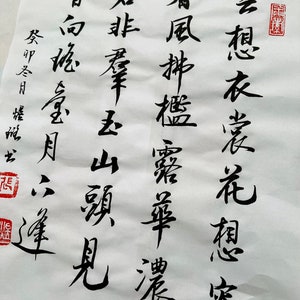 雲想衣裳花想容
春風拂檻露華濃
若非羣玉山頭見
會向瑤臺月下逢
癸卯冬月
張